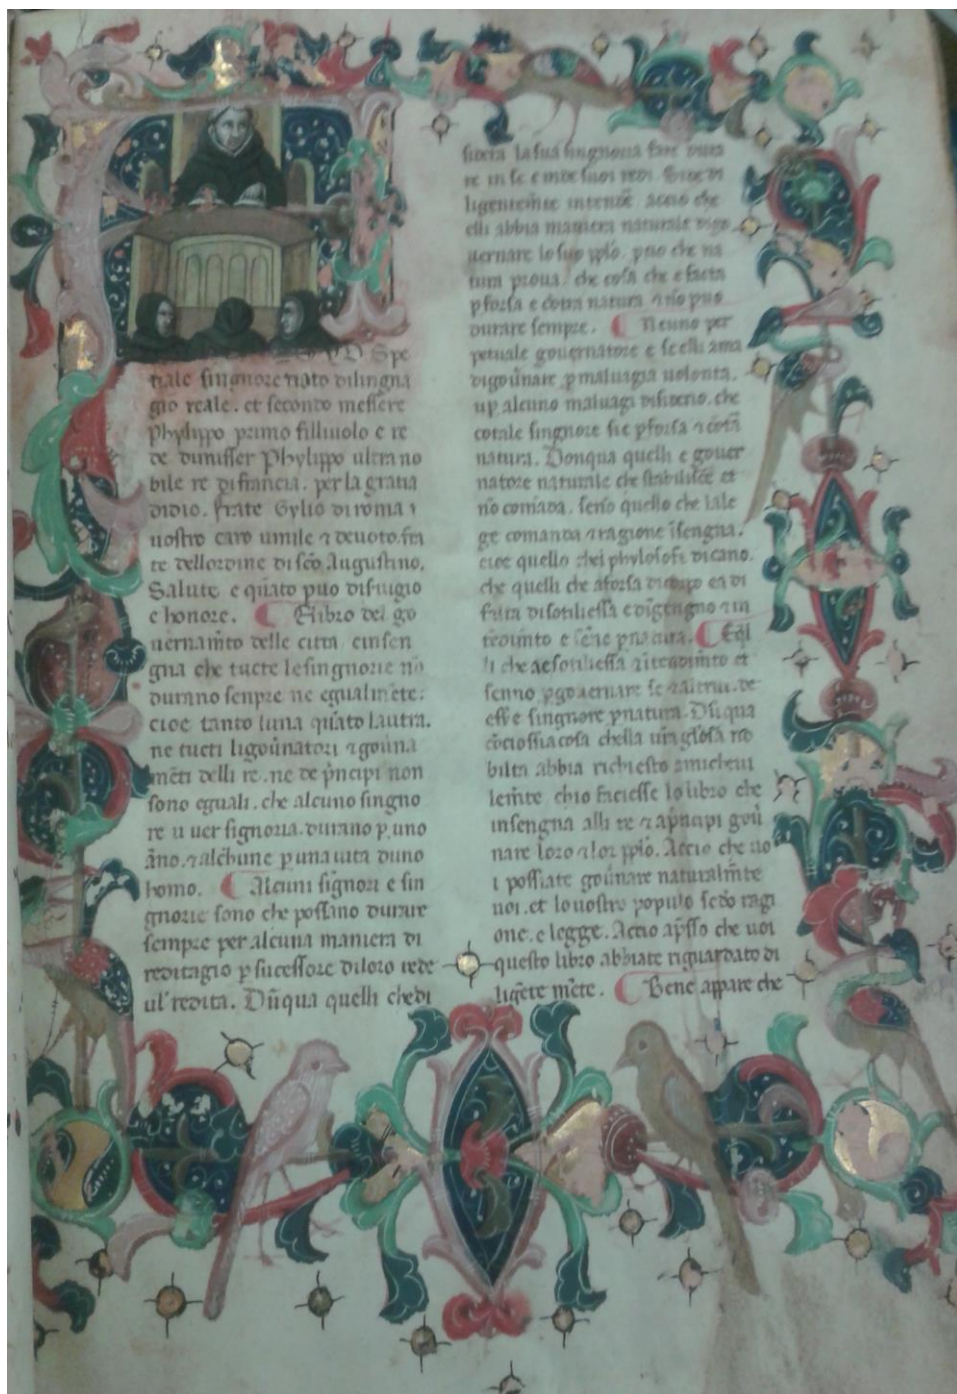 Spe
tiale singnore nato dilingna
gio reale. et secondo messere
phylippo primo filliuolo e re
de dimisser phylippo ultra no
bile re di francia. per la gratia
didio. frate Gylio di roma i
uostro caro umile ⁊ deuoto. fra
te dellordine di sco Augustino.
Salute e quāto puo di seruigio
e honore. ¶ Elibro del go
uernamīto delle citta cinsen
gna che tucte le singnorie nō
durano senpre ne egualmēte:
cioe tanto luna quāto lautra.
ne tucti ligoūnatori ⁊ goūna
mēti delli re. ne de p̄ncipi non
sono eguali. che alcuno singno
re u uer signoria. durano p. uno
āno. ⁊ alchune p una uita duno
homo. ¶ Alcuni signori e sin
gnorie sono che possano durare
sempre per alcuna maniera di
reditagio p sucessore diloro rede
ul' redita. Dūqua quelli chedi
sidera la sua singnoria fare dura
re in se e inde suoi redi. Si de di
ligentemte intende acio che
elli abbia maniera naturale digo
uernare lo suo pplo. pcio che na
tura proua. che cosa che e facta
p forsa e cōtra natura ⁊ nō puo
durare sempre. ¶ Neuno per
petuale gouernatore e se elli ama
digoūnare p maluagia uolonta.
u p alcuno maluagi disiderio. che
cotale singnore sie p forsa ⁊ cōtā
natura. Donqua quelli e gouer
natore naturale che stabilisce et
nō comāda. senso quello che lale
ge comanda ⁊ ragione īsengna.
cioe quello chei phylosofi dicano.
che quelli che a forsa di corpo ea di
fecta disotiliessa e dīgengno ⁊ in
tēdimīto e seruo p natura. ¶ Equel
li che ae sotiliessa ⁊ ītendimīto et
senno p gouernare se ⁊ altrui. de
esse singnore p natura. Dūqua
cōciossiacosa chella ura glosa no
bilta abbia richiesto amicheuel
lemēte chio faciesse lo libro che
insengna alli re ⁊ a p̄ncipi goū
nare loro ⁊ lor pplo. Accio che uo
i possiate goūnare naturalmēte
uoi. et lo uostro populo secōdo ragi
one. e legge. Accio apsso che uoi
questo libro abbiate riguardato di
ligēte mēte. ¶ Bene appare che